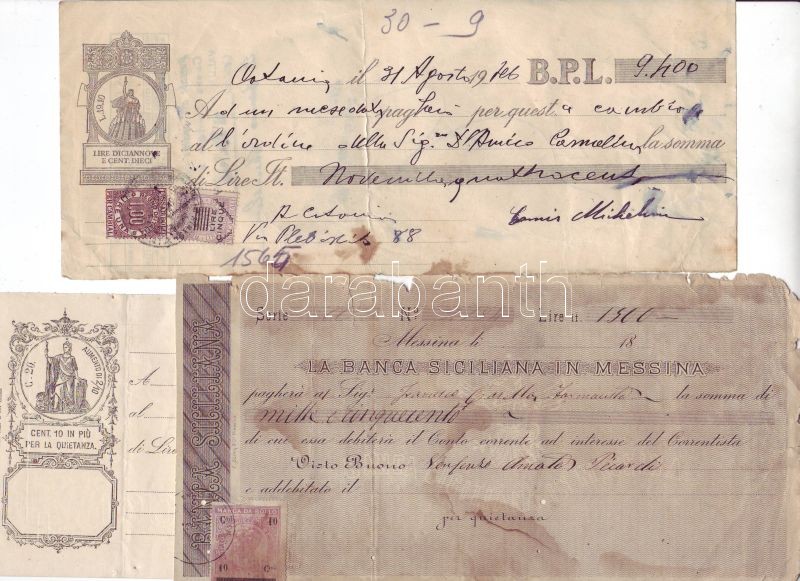 30 - 9
Catania, il 31 Agosto 1926 B.P.L. 9.400
L.19,10
A due mesi data pagherò per questa cambiale
al l'ordine della Sig.ra D'Amico Carmelina la somma
di Lire It. Novemilaquattrocento
LIRE DICIANNOVE
E CENT. DIECI
A Catania
Via Plebiscito 88
1565
LIRE CINQUE
darabanth
Serie N° Lire it. 1500
Messina li 18
LA BANCA SICILIANA IN MESSINA
BANCA SICILIANA
pagherà al Sig.r la somma di
mille cinquecento
di cui essa debiterà il Conto corrente ad interesse del Correntista
Visto Buono
e addebitato il
per quietanza
C. 20. AUMENTO DI 2/10
CENT. 10 IN PIÙ
PER LA QUIETANZA.
A
al
di Lire
MARCA DA BOLLO
10 10